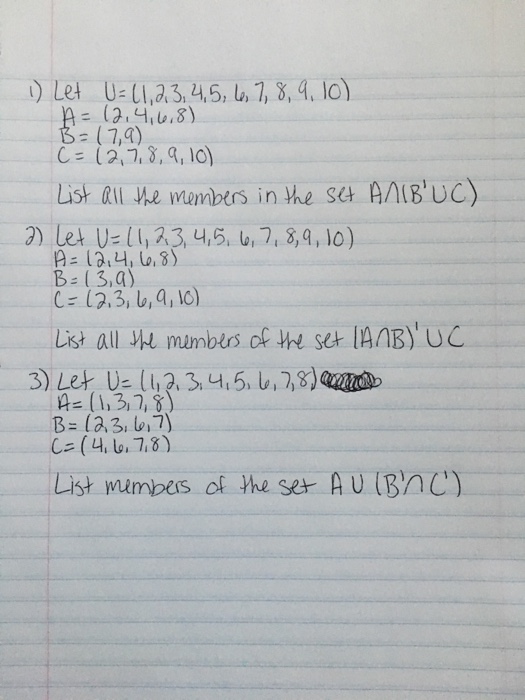 1) Let U=(1,2,3,4,5,6,7,8,9,10)
A = (2,4,6,8)
B = (7,9)
C = (2,7,8,9,10)
List all the members in the set A∩(B'∪C)
2) Let U=(1,2,3,4,5,6,7,8,9,10)
A=(2,4,6,8)
B=(3,9)
C=(2,3,6,9,10)
List all the members of the set (A∩B)'∪C
3) Let U=(1,2,3,4,5,6,7,8)
A=(1,3,7,8)
B=(2,3,6,7)
C=(4,6,7,8)
List members of the set A∪(B'∩C')